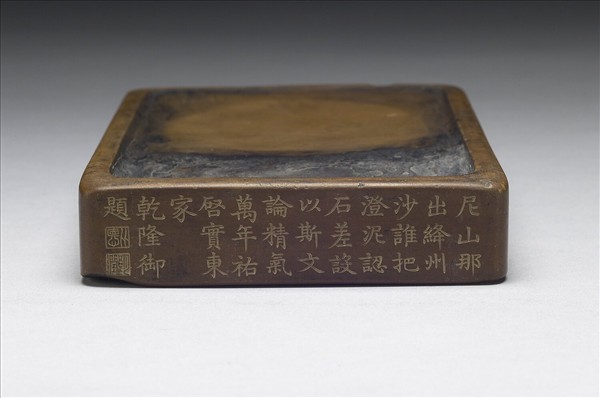 尼山那
出絳州
沙誰把
澄泥認
石差設
以斯文
論精氣
萬年祐
啓實東
家
乾隆御
題